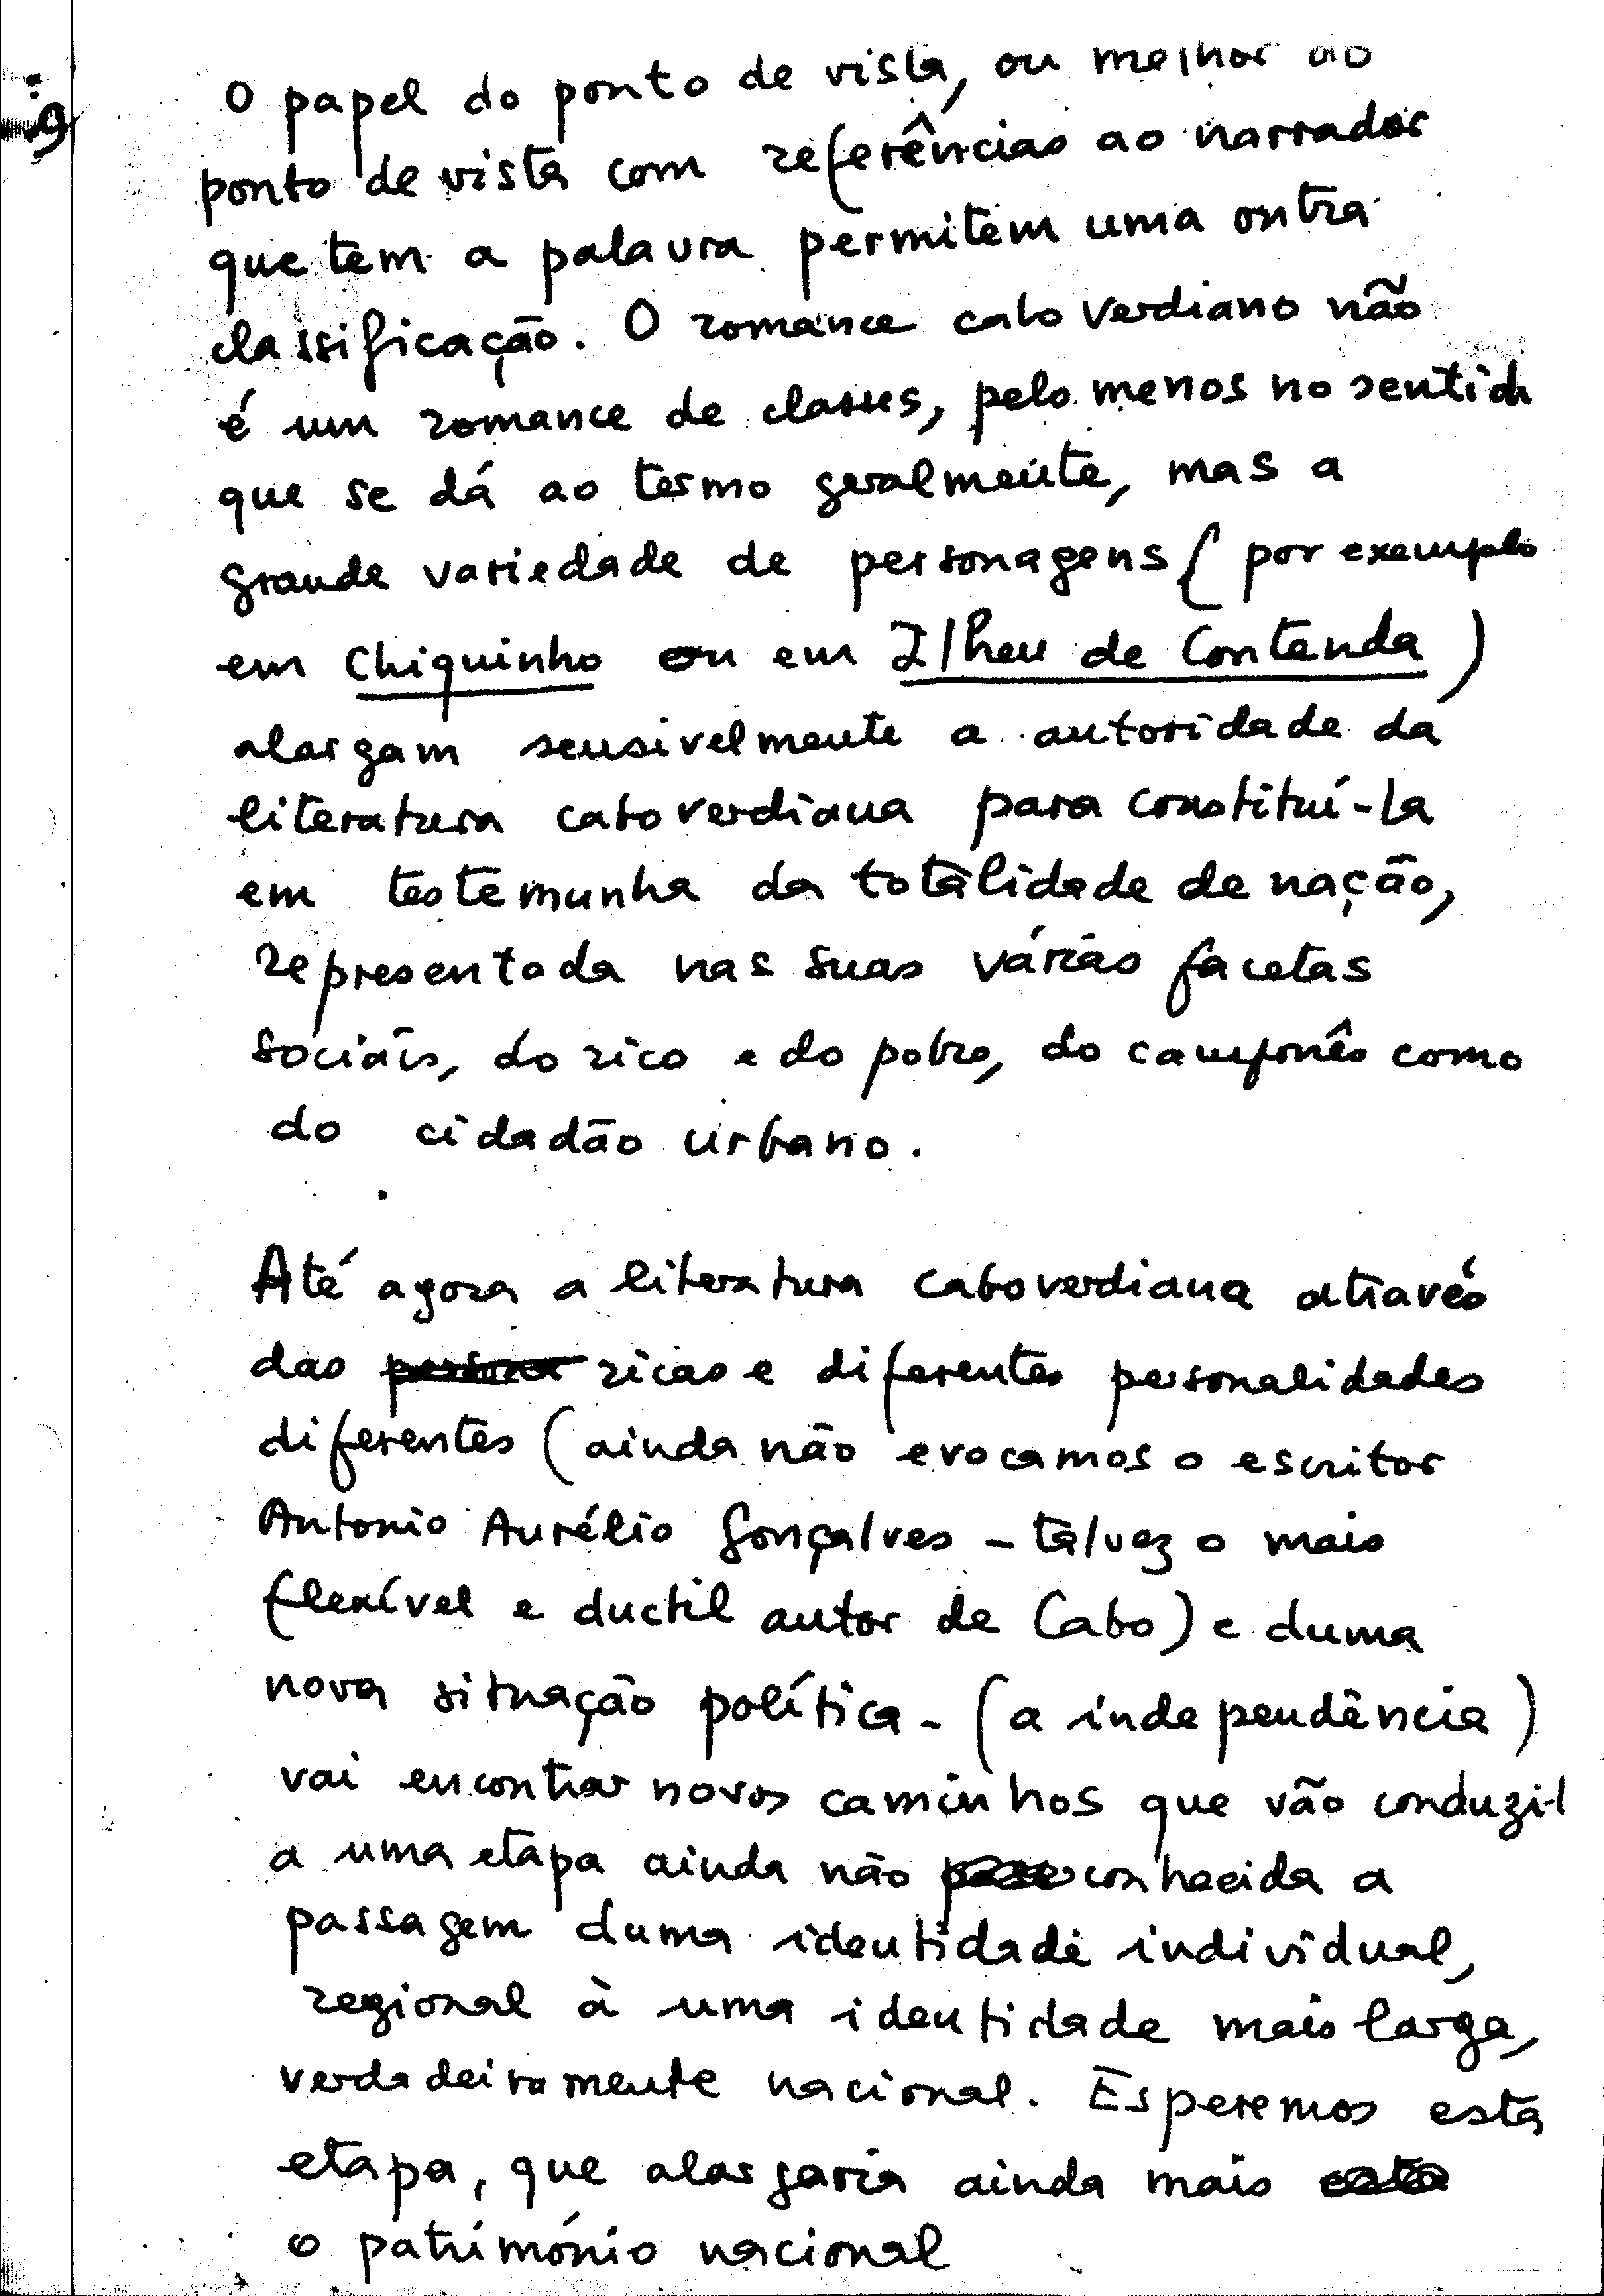 9
O papel do ponto de vista, ou melhor do
ponto de vista com referências ao narrador
que tem a palavra permitem uma outra
classificação. O romance cabo verdiano não
é um romance de classes, pelo menos no sentido
que se dá ao termo geralmente, mas a
grande variedade de personagens (por exemplo
em Chiquinho ou em Ilheu de Contenda)
alargam sensivelmente a autoridade da
literatura caboverdiana para constituí-la
em testemunha da totalidade de nação,
representada nas suas várias facetas
sociais, do rico e do pobre, do camponês como
do cidadão urbano.
Até agora a literatura caboverdiana através
das ricas e diferentes personalidades
diferentes (ainda não evocamos o escritor
Antonio Aurélio Gonçalves - talvez o mais
flexível e ductil autor de Cabo) e duma
nova situação política - (a independência)
vai encontrar novos caminhos que vão conduzi-l
a uma etapa ainda não conhecida a
passagem duma identidade individual,
regional à uma identidade mais larga,
verdadeiramente nacional. Esperemos esta
etapa, que alargaria ainda mais
o património nacional